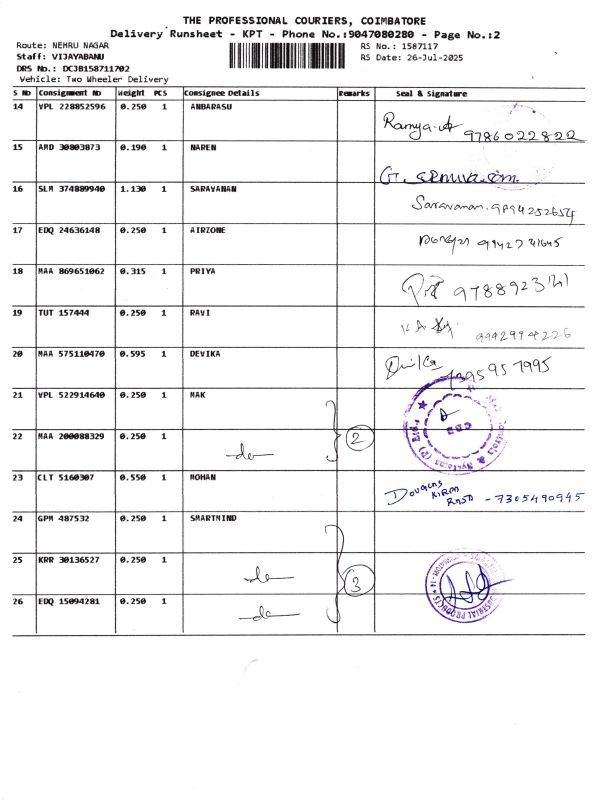 THE PROFESSIONAL COURIERS, COIMBATORE
Delivery Runsheet - KPT - Phone No.:9047080280 - Page No.:2
Route: NEHRU NAGAR RS No.: 1587117
Staff: VIJAYABANU RS Date: 26-Jul-2025
DRS No.: DCJB158711702
Vehicle: Two Wheeler Delivery
S No Consignment No Weight PCS Consignee Details Remarks Seal & Signature
14 VPL 228852596 0.250 1 ANBARASU Ramya.A 9786022822
15 AMD 30803873 0.190 1 NAREN
16 SLM 374889940 1.130 1 SARAVANAN Saravanan.
17 EDQ 24636148 0.250 1 AIRZONE
18 MAA 869651062 0.315 1 PRIYA
19 TUT 157444 0.250 1 RAVI 9942994226
20 MAA 575110470 0.595 1 DEVIKA 7395957995
21 VPL 522914640 0.250 1 MAK
22 MAA 200088329 0.250 1 do 2
23 CLT 5160307 0.550 1 MOHAN Douglas - 7305490945
24 GPM 487532 0.250 1 SMARTMIND
25 KRR 30136527 0.250 1 do 3
26 EDQ 15094281 0.250 1 do